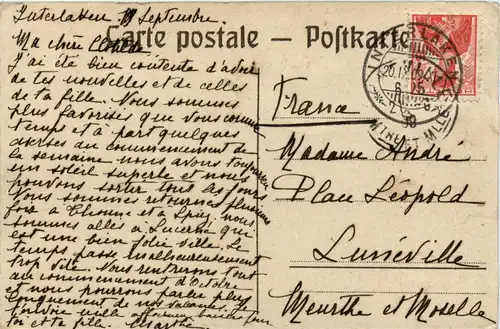 Interlaken 19 Septembre.
Carte postale – Postkarte
Ma chère Clotilde
J'ai été bien contente d'avoir
de tes nouvelles et de celles
de ta fille. Nous sommes
plus favorisés que vous comme
temps et à part quelques
averses au commencement de
la semaine nous avons toujours
un soleil superbe et nous
pouvons sortir tous les jours
Nous sommes retournés plusieurs
fois à Thoune et à Spiez, nous
sommes allés à Lucerne qui
est une bien jolie ville. Le
temps passe malheureusement
trop vite. Nous rentrerons tout
au commencement d'Octobre
et nous pourrons parler plus
longuement de nos vacances.
mille affectueux baisers pour
toi et ta fille. Marthe
France
Madame André
Place Léopold
Lunéville
Meurthe et Moselle
INTERLAKEN